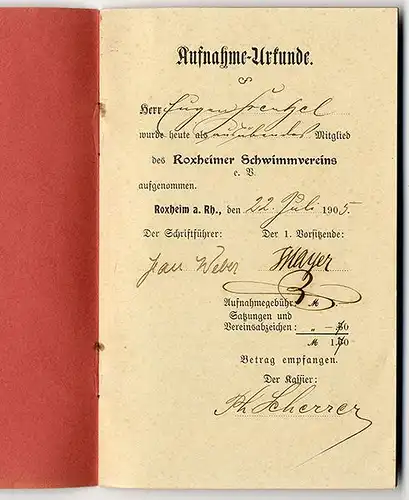 Aufnahme-Urkunde.
Herr Eugen Frentzel
wurde heute als ausübendes Mitglied
des Roxheimer Schwimmvereins
e. V.
aufgenommen.
Roxheim a. Rh., den 22. Juli 1905.
Der Schriftführer: Der 1. Vorsitzende:
Jean Weber Mayer
Aufnahmegebühr: M
Satzungen und
Vereinsabzeichen: „
M
Betrag empfangen.
Der Kassier:
Ph Scherrer